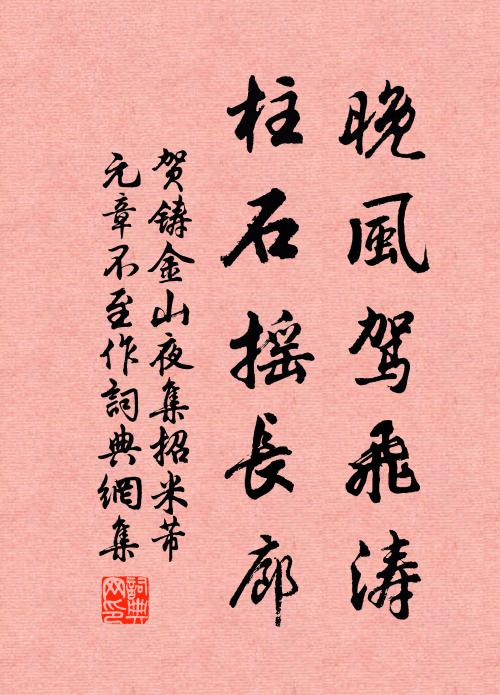 晚風駕飛涛
柱石摇長廊
贺铸金山夜集招米芾
元章不至作詞典網集
詞典网印